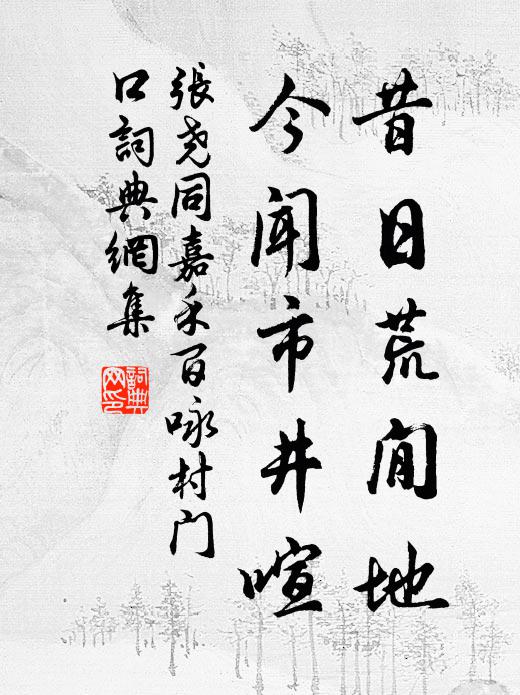 昔日荒闲地
今闻市井喧
張尧同嘉禾百咏村门
口詞典網集
詞典